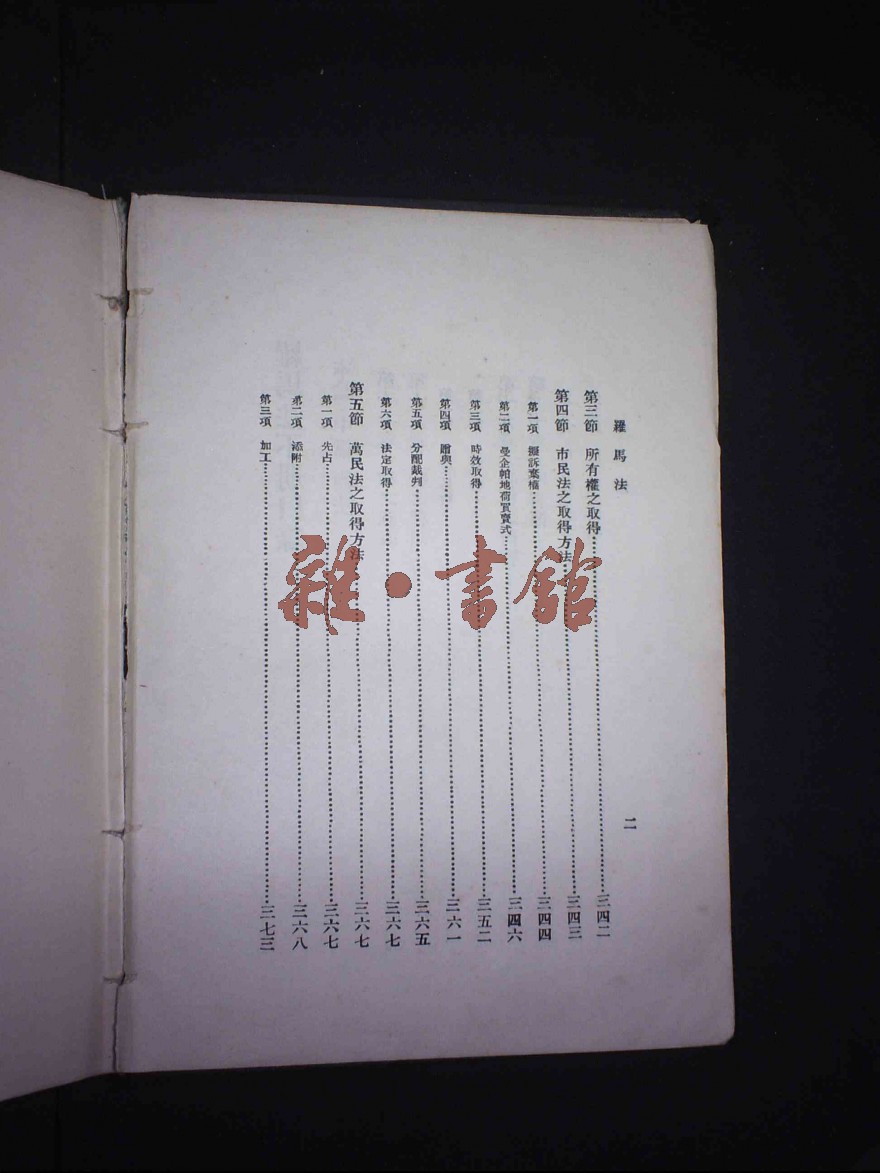 羅馬法
二
第三節 所有權之取得……三四二
第四節 市民法之取得方法……三四三
第一項 擬訴棄權……三四四
第二項 曼企帕地荷買賣式……三四六
第三項 時效取得……三五二
第四項 贈與……三六一
第五項 分配裁判……三六五
第六項 法定取得……三六七
第五節 萬民法之取得方法……三六七
第一項 先占……三六七
第二項 添附……三六八
第三項 加工……三七三
雜·書館